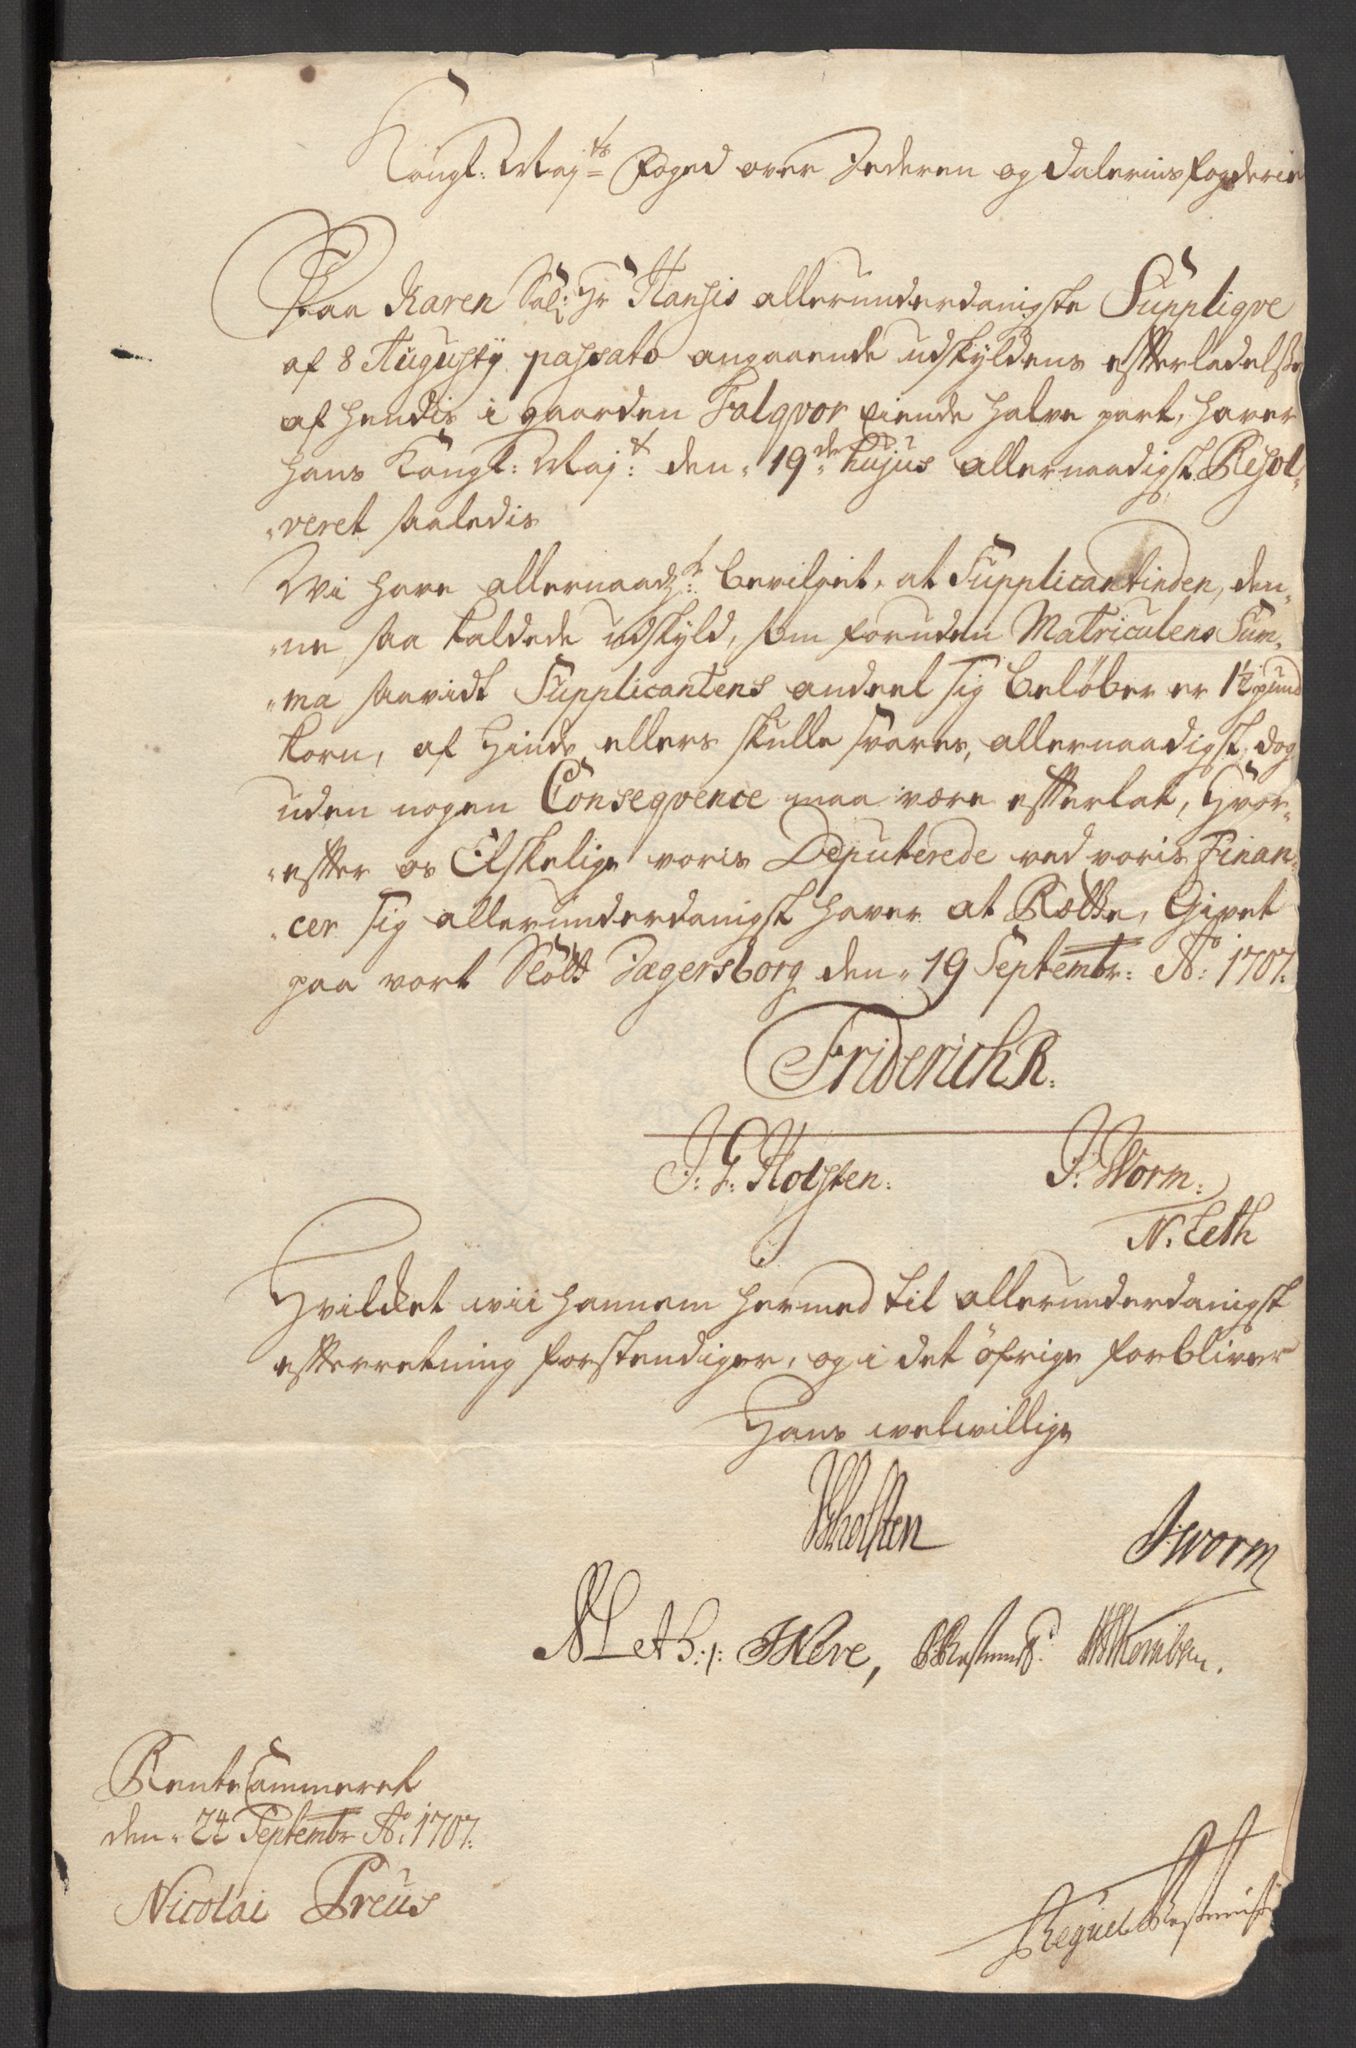 Kongl: Maj:ts Foged over Jederen og Dalernis fogderie
Paa Karen Sal: Hr Hansis allerunderdanigste Suppliqve
af 8 Augusty passato angaaende udskyldens efterladelse
af hendis i gaarden Falqvor eiende halve part, haver
hans Kongl: Maj:t den 19de hujus allernaadigst Resol-
veret saaledis
Wi have allernaadst: bevilget, at Supplicantinden, den-
ne saa kaldede udskyld, som foruden Matriculens Sum-
ma saavidt Supplicantens andeel sig beløber er 1½ pund
korn, af Hinde ellers skulle svares, allernaadigst, dog
uden nogen Conseqvence maa være efterlat, Hvor-
efter os Elskelige voris Deputerede ved voris Finan-
cer sig allerunderdanigst haver at Rætte, Givet
paa vort Slott Jægersborg den 19 Septembr: Ao: 1707.
Friderich R.
J: G: Holsten: J: Worm:
N. Leth
Hvilcket wii hannem hermed til allerunderdanigst
efterretning forstendiger, og i det öfrige forbliver
Hans welwillige
Holsten JWorm
NLeth:/:
Rente Cammeret
den 24 Septembr Ao: 1707.
Nicolai Preus